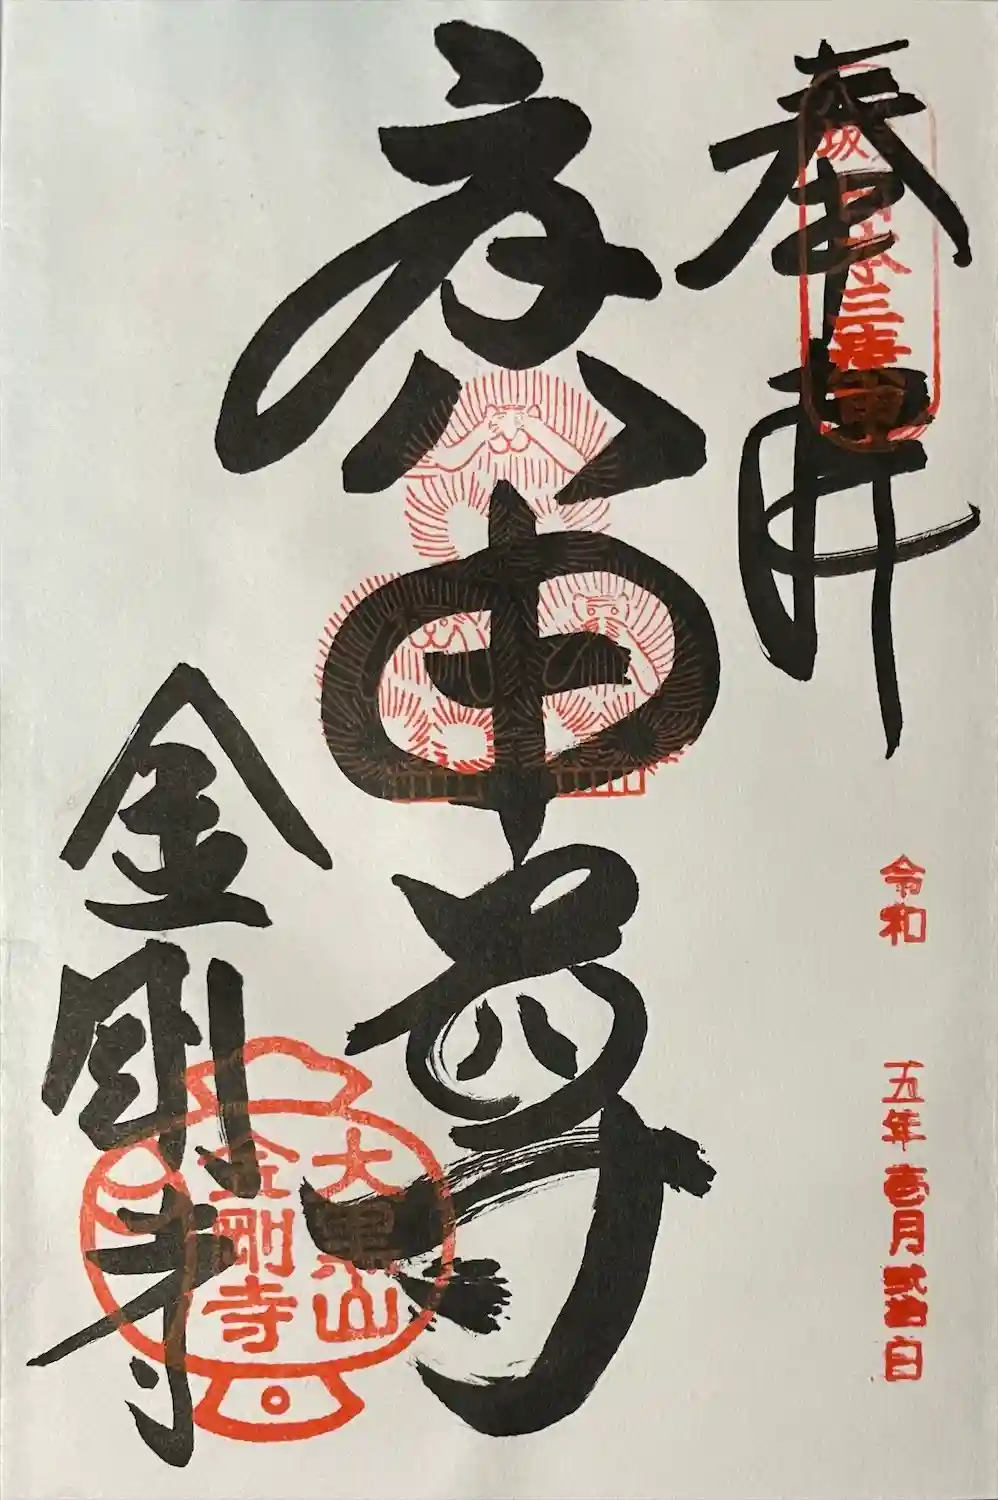 奉拝
八坂 日本三庚申
庚申尊
金剛寺
大黒山
金剛寺
令和 五年 壱月 弐拾日